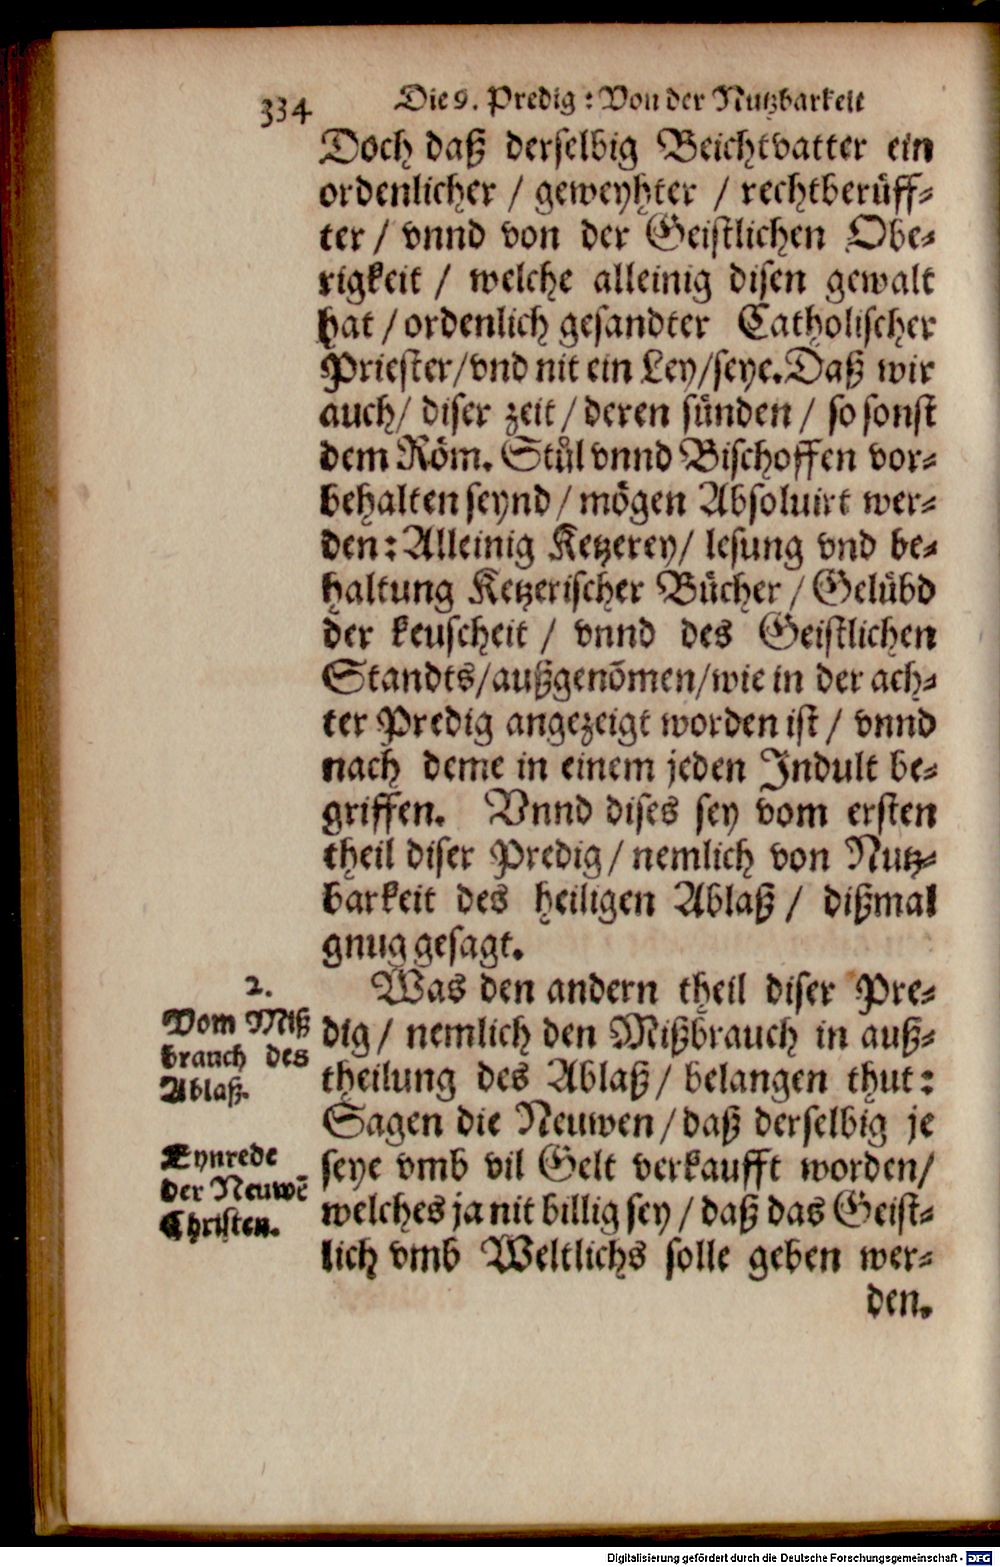 334 Die 9. Predig: Von der Nutzbarkeit
Doch daß derselbig Beichtvatter ein
ordenlicher / geweyhter / rechtberüff-
ter / vnnd von der Geistlichen Obe-
rigkeit / welche alleinig disen gewalt
hat / ordenlich gesandter Catholischer
Priester/vnd nit ein Ley/seye. Daß wir
auch/ diser zeit / deren sünden / so sonst
dem Röm. Stůl vnnd Bischoffen vor-
behalten seynd / mögen Absoluirt wer-
den: Alleinig Ketzerey/ lesung vnd be-
haltung Ketzerischer Bücher / Gelübd
der keuscheit / vnnd des Geistlichen
Standts/außgenõmen/wie in der ach-
ter Predig angezeigt worden ist / vnnd
nach deme in einem jeden Indult be-
griffen. Vnnd dises sey vom ersten
theil diser Predig / nemlich von Nutz-
barkeit des heiligen Ablaß / dißmal
gnug gesagt.
2.
Vom Miß
brauch des
Ablaß.
Was den andern theil diser Pre-
dig / nemlich den Mißbrauch in auß-
theilung des Ablaß / belangen thut:
Sagen die Neuwen / daß derselbig je
Eynrede
der Neuwẽ
Christen.
seye vmb vil Gelt verkaufft worden/
welches ja nit billig sey / daß das Geist-
lich vmb Weltlichs solle geben wer-
den.
Digitalisierung gefördert durch die Deutsche Forschungsgemeinschaft - DFG